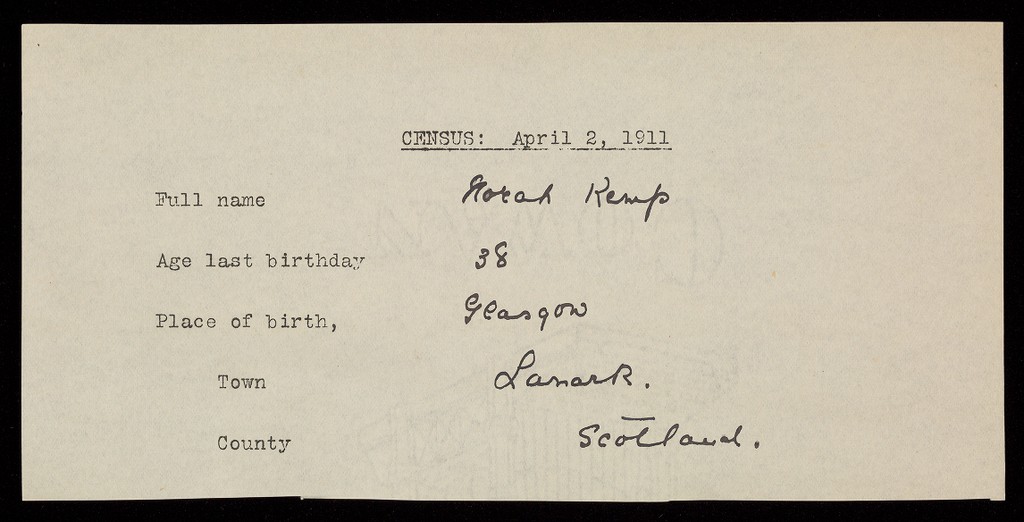 CENSUS: April 2, 1911
Full name Norah Kemp
Age last birthday 38
Place of birth, Glasgow
Town Lanark.
County Scotland.